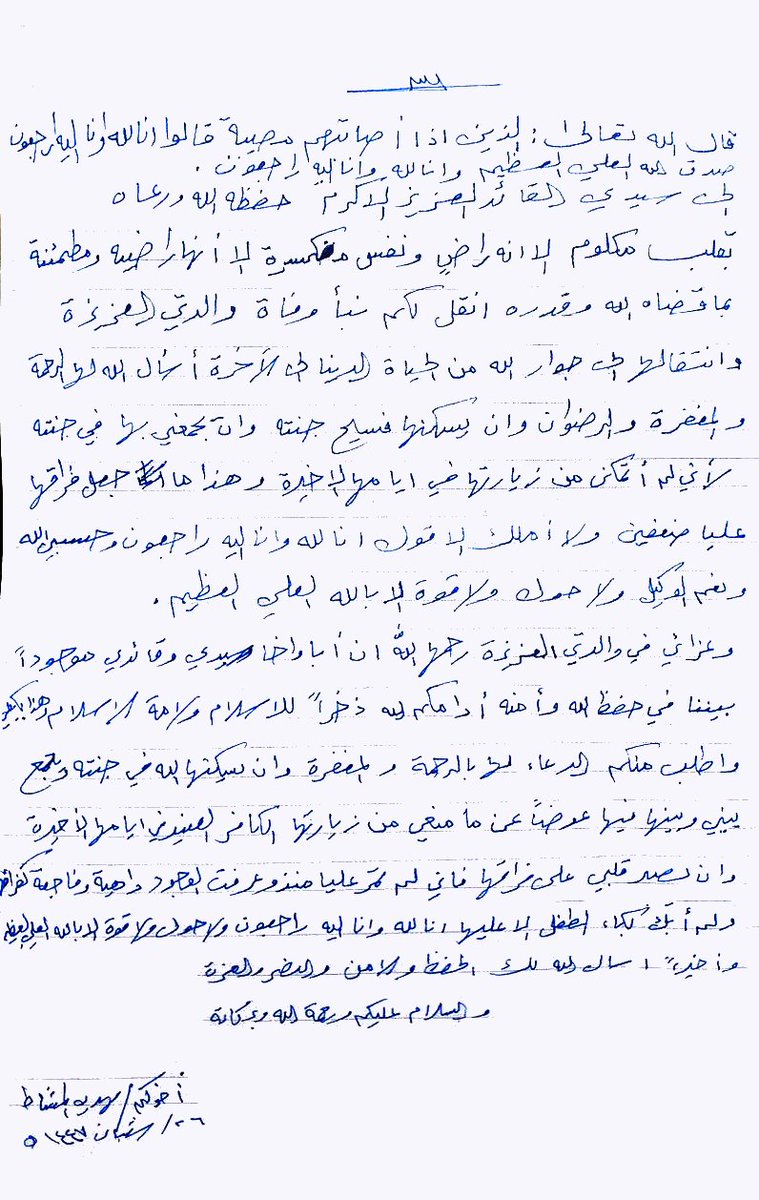 قال الله تعالى: الذين اذا أصابتهم مصيبة قالوا انا لله وانا اليه راجعون
صدق الله العلي العظيم وانا لله وانا اليه راجعون .
الى سيدي القائد العزيز الاكرم حفظه الله ورعاه
بقلب مكلوم الا انه راضي ونفس منكسرة الا أنها راضيه ومطمئنة
بما قضاه الله وقدره انقل لكم نبأ وفاة والدتي العزيزة
وانتقالها الى جوار الله من الحياة الدينا الى الآخرة أسأل الله لها الرحمة
والمغفرة والرضوان وان يُسكنها فسيح جنته وان يجمعني بها في جنته
لأني لم أتمكن من زيارتها في ايامها الاخيرة وهذا ما جعل فراقها
عليا ضعفين ولا أملك الا قول انا لله وانا اليه راجعون وحسبي الله
ونعم الوكيل ولا حول ولا قوة الا بالله العلي العظيم .
وعزائي في والدتي العزيزة رحمها الله ان أبا واخا سيدي وقائدي موجوداً
بيننا في حفظ الله وأمنه أدامكم الله ذخراً للاسلام ولامة الاسلام وهذا يكفي
واطلب منكم الدعاء لها بالرحمة والمغفرة وان يسكنها الله في جنته ويجمع
بيني وبينها فيها عوضاً عن ما منعني من زيارتها الكافر العنيد في ايامها الأخيرة
وان يصبر قلبي على فراقها فاني لم تمر عليا منذو عرفت الوجود داهية وفاجعة كفراقها
ولم أبكِ بكاء الطفل الا عليها انا لله وانا اليه راجعون ولا حول ولا قوة الا بالله العلي العظيم
وأخيراً اسال الله لك الحفظ والامن والنصر والعزة
والسلام عليكم ورحمة الله وبركاتة
أخوكم / مهدي المشاط
٢٦/ شعبان ١٤٤٧ ه